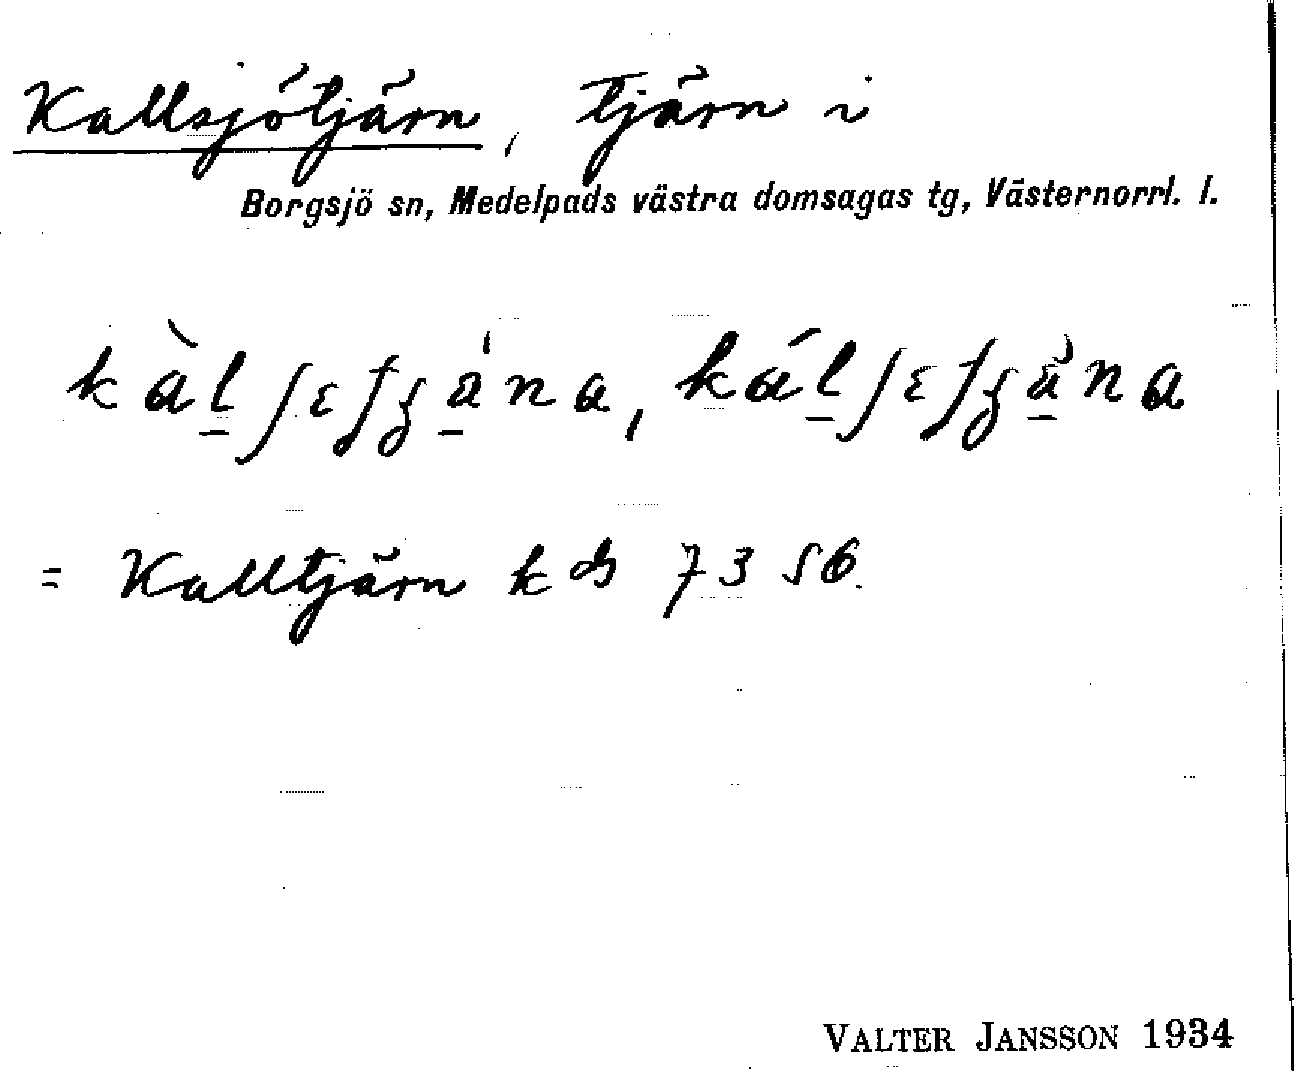 Kallsjötjärn, tjärn i
Borgsjö sn, Medelpads västra domsagas tg, Västernorrl. l.
= Kalltjärn k ds 7356.
VALTER JANSSON 1934